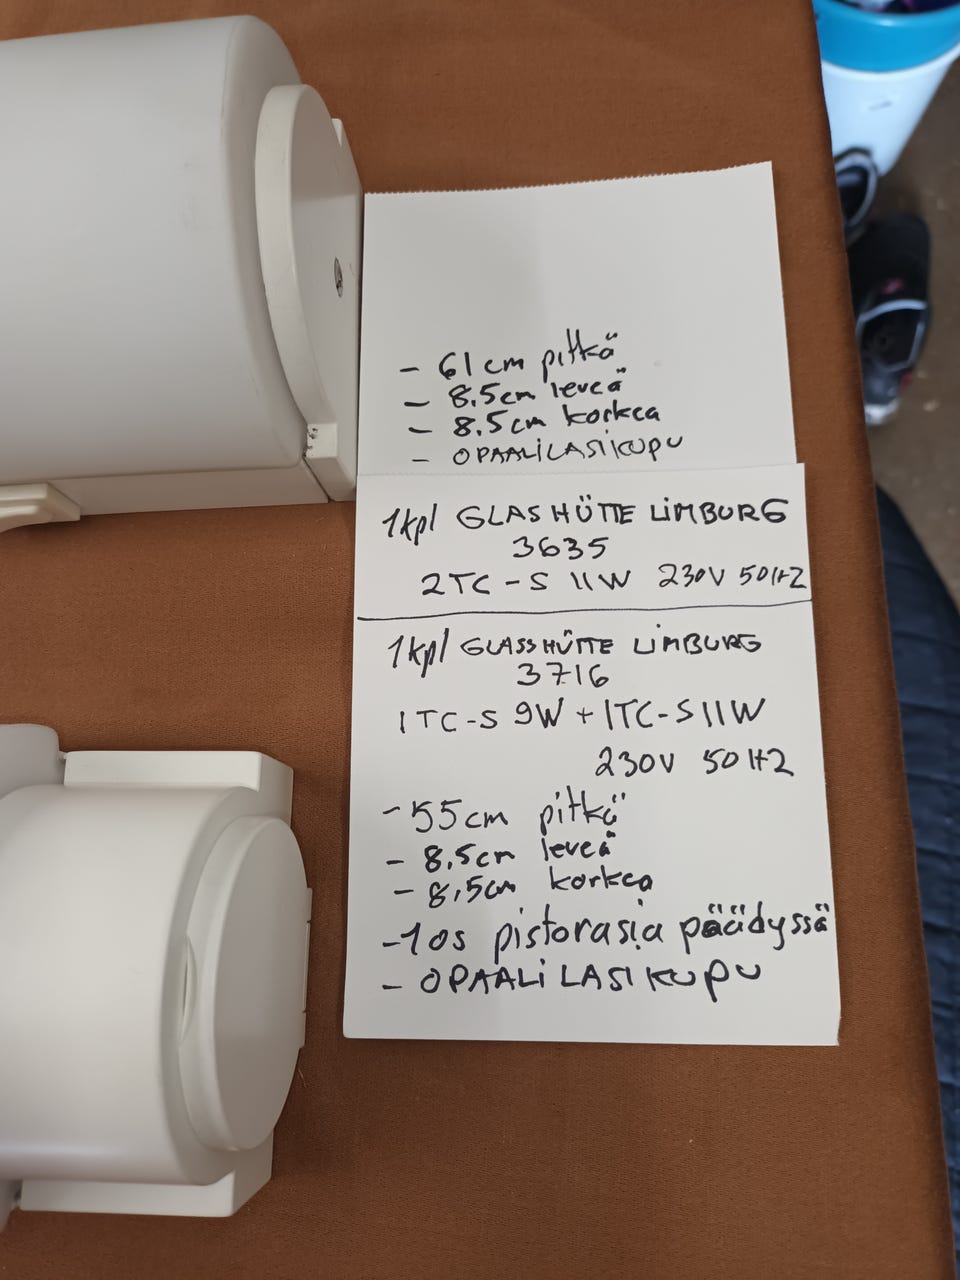 - 61 cm pitkä
- 8.5cm leveä
- 8.5cm korkea
- OPAALiLASiKUPU
1kpl GLASHÜTTE LiMBURG
3635
2TC-S 11W 230V 50HZ
1kpl GLASSHÜTTE LiMBURG
3716
1TC-S 9W + 1TC-S 11W
230V 50HZ
- 55cm pitkä
- 8.5cm leveä
- 8.5cm korkea
- 1 os pistorasia päädyssä
- OPAALi LASi KUPU